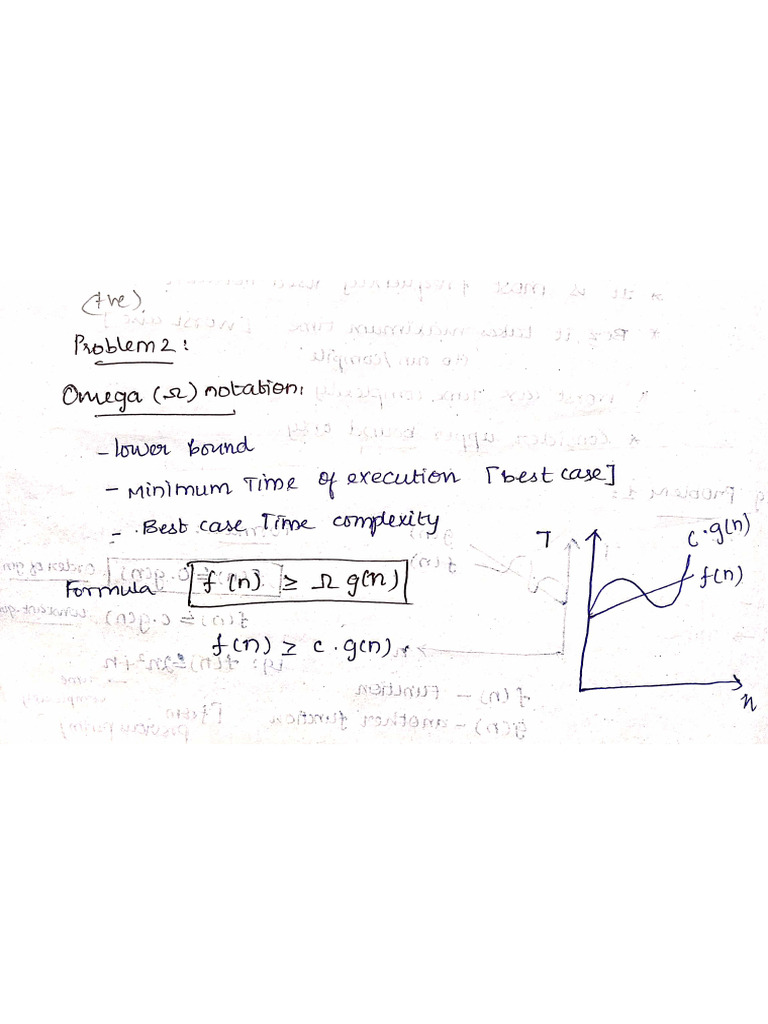 (+ve)
Problem 2:
Omega (Ω) notation:
- lower bound
- Minimum Time of execution [best case]
- Best case Time complexity
Formula f(n) ≥ Ω g(n)
f(n) ≥ c.g(n)
T
c.g(n)
f(n)
n